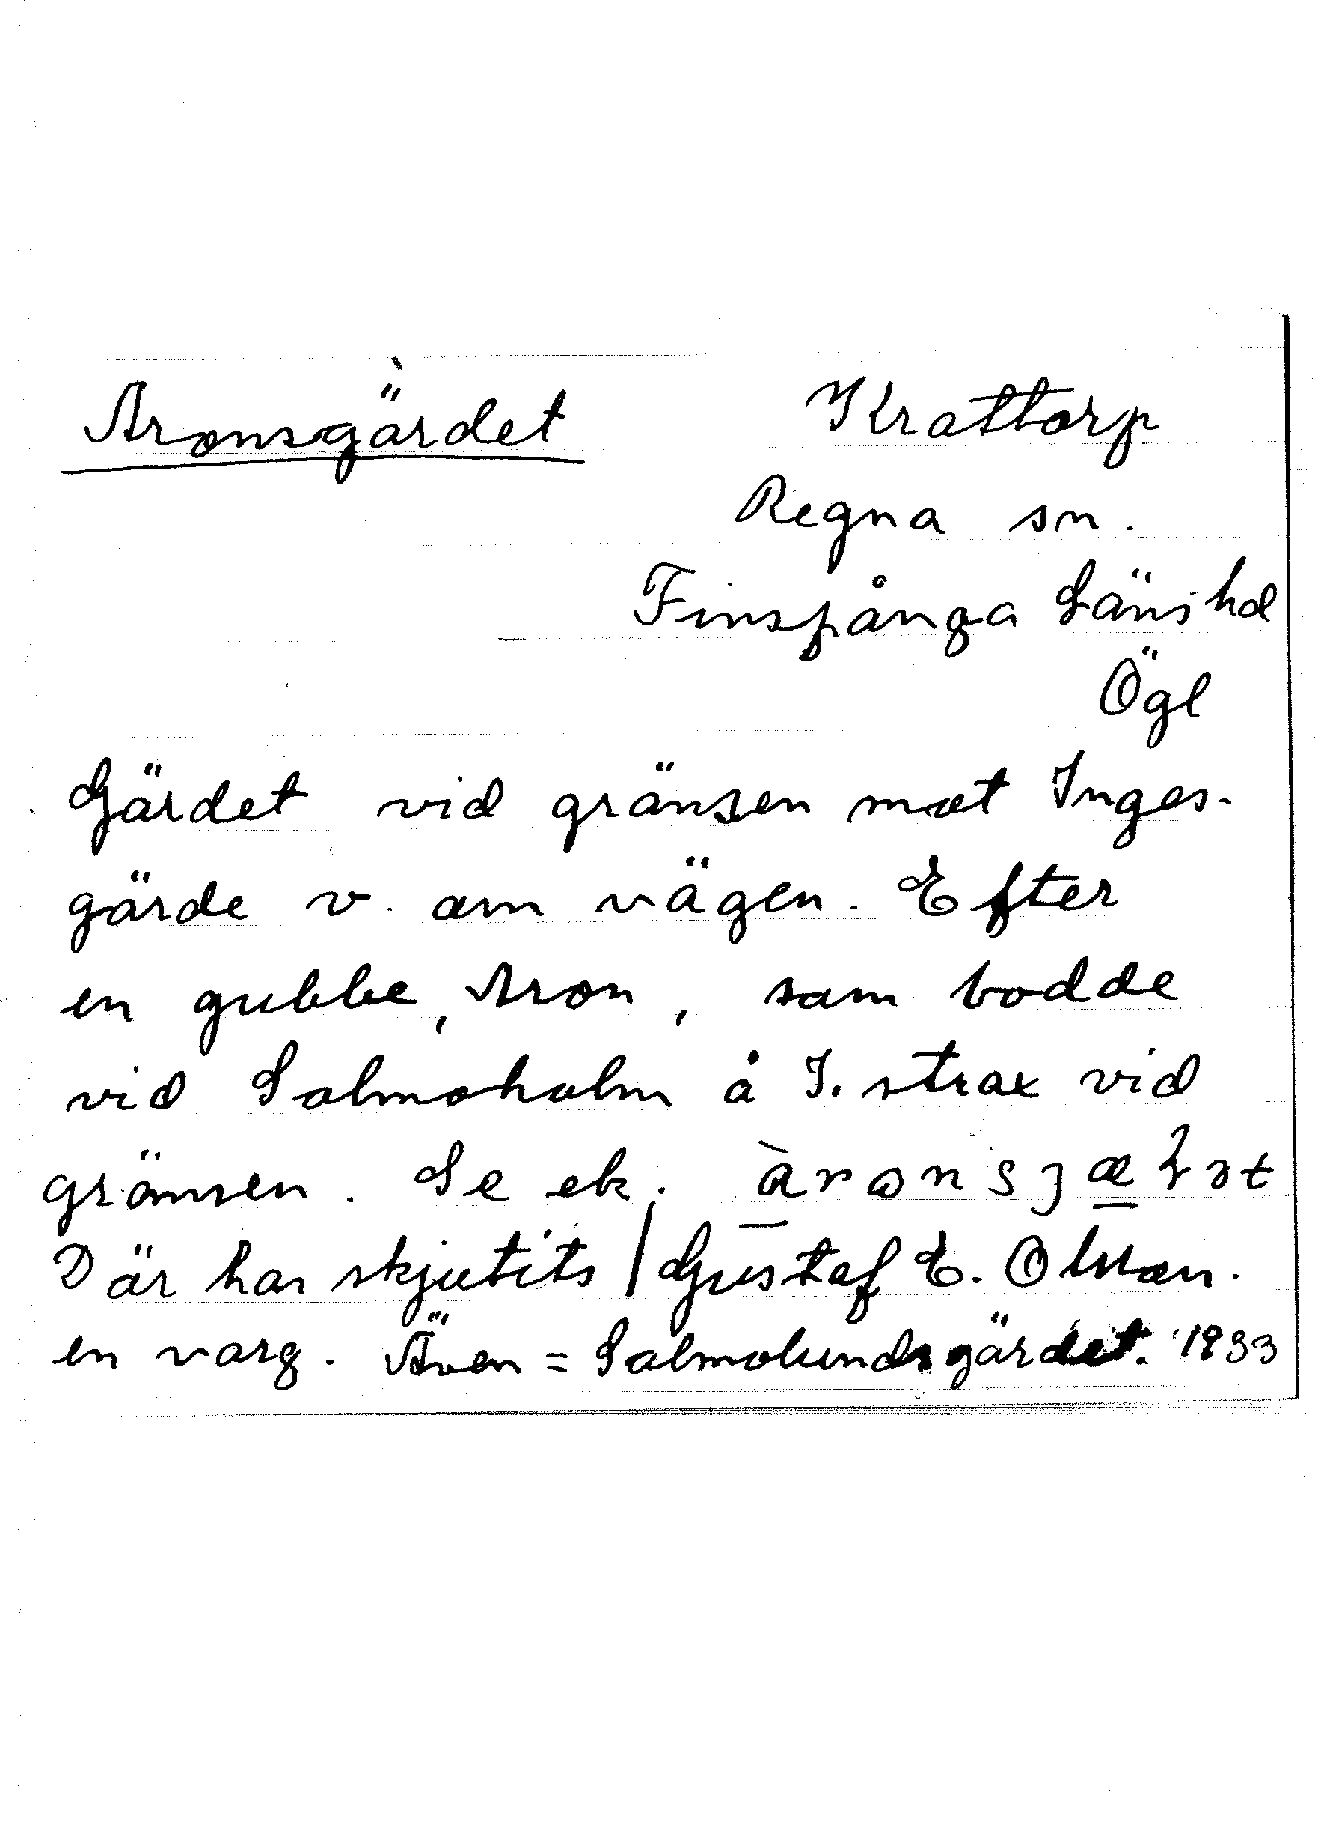 Aronsgärdet
Krattorp
Regna sn.
Finspånga Läns hd
Ögl
Gärdet vid gränsen mot Inges-
gärde v. om vägen. Efter
en gubbe, Aron, som bodde
vid Salmoholm å I. strax vid
gränsen. Se ek.
Där har skjutits / Gustaf E. Olsson.
en varg. Även = Salmolundsgärdet. 1933